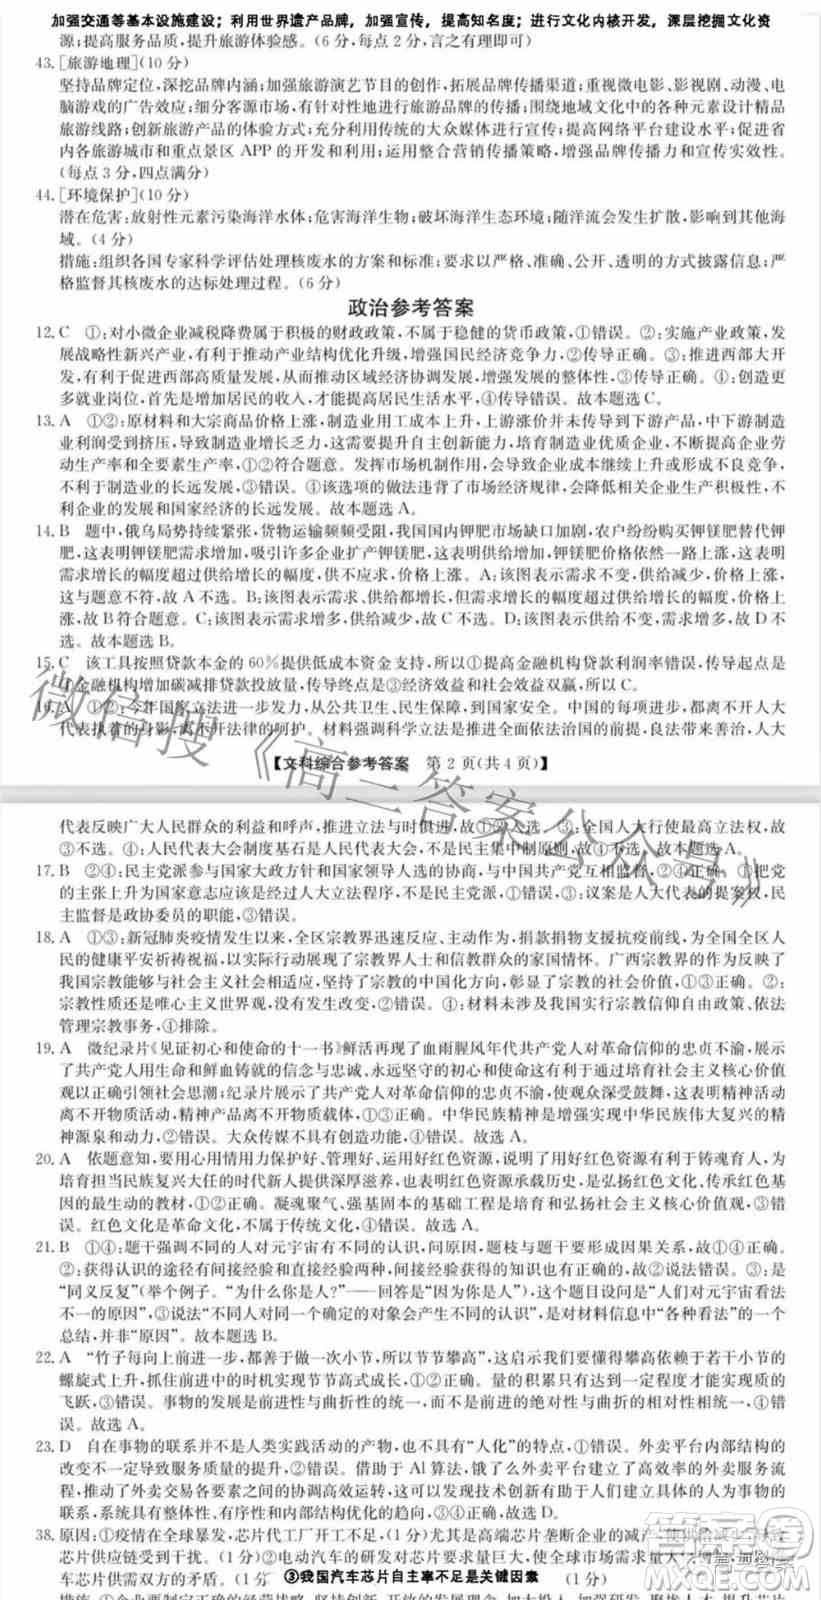 加强交通等基本设施建设；利用世界遗产品牌，加强宣传，提高知名度；进行文化内核开发，深层挖掘文化资
源；提高服务品质，提升旅游体验感。(6 分，每点 2 分，言之有理即可)
43.[旅游地理](10 分)
坚持品牌定位，深挖品牌内涵；加强旅游演艺节目的创作，拓展品牌传播渠道；重视微电影、影视剧、动漫、电
脑游戏的广告效应；细分客源市场，有针对性地进行旅游品牌的传播；围绕地域文化中的各种元素设计精品
旅游线路；创新旅游产品的体验方式；充分利用传统的大众媒体进行宣传；提高网络平台建设水平；促进省
内各旅游城市和重点景区 APP 的开发和利用；运用整合营销传播策略，增强品牌传播力和宣传实效性。
(每点 3 分，四点满分)
44.[环境保护](10 分)
潜在危害：放射性元素污染海洋水体；危害海洋生物；破坏海洋生态环境；随洋流会发生扩散，影响到其他海
域。(4 分)
措施：组织各国专家科学评估处理核废水的方案和标准；要求以严格、准确、公开、透明的方式披露信息；严
格监督其核废水的达标处理过程。(6 分)
政治参考答案
12. C ①：对小微企业减税降费属于积极的财政政策，不属于稳健的货币政策，①错误。②：实施产业政策，发
展战略性新兴产业，有利于推动产业结构优化升级，增强国民经济竞争力，②传导正确。③：推进西部大开
发，形成高质量发展，从而推动区域经济协调发展，增强发展的整体性，③传导正确。④：创造更
多就业岗位，首先是增加居民的收入，才能提高居民生活水平，④传导错误。故本题选 C。
13. A ①②：原材料和大宗商品价格上涨，制造业用工成本上升，上游涨价并未传导到下游产品，中下游制造
业利润受到挤压，导致制造业增长乏力，故这需要提升自主创新能力，培育制造业优质企业，不断提高企业劳
动生产率和全要素生产率，①②符合题意。发挥市场机制作用，会导致企业成本继续上升或形成不良竞争，
不利于制造业的长远发展，③错误。④该选项的做法违背了市场经济规律，会降低企业生产积极性，不利
于企业的发展和国家经济的长远发展。故本题选 A。
14. B 题中，俄乌局势持续紧张，货物运输频频受阻，我国国内钾肥市场缺口加剧，农户纷纷购买钾镁肥替代钾
肥，这表明钾镁肥需求增加，吸引许多企业扩产钾镁肥，这表明供给增加，钾镁肥价格依然一路上涨，这表明
需求增长的幅度超过供给增长的幅度，供不应求，价格上涨。A：该图表示需求增长的幅度小于供给增长的幅度，
这与题意不符，故 A 不选。B：该图表示需求增长的幅度超过供给增长的幅度，供不应求，价格上涨，
故 B 符合题意。C：该图表示需求增多，供给减少，故 C 不选。D：该图表示供给不变，需求增多，故 D 不
选。故本题选 B。
15. C 该工具按照贷款本金的 60%提供低成本资金支持，所以①提高金融机构贷款利润率错误，传导起点是
金融机构增加碳减排贷款投放量，传导终点是③经济效益和社会效益双赢，所以 C。
16. A ①②：今年国家立法进一步加快，从公共卫生、民生保障，到国家安全。中国的每一项成功，都离不开人大
代表扶着的身影，离不开法律的呵护。材料强调科学立法是推进全面依法治国的前提，良法带来善治，人大
【文科综合参考答案 第 2 页(共 4 页)】
代表反映广大人民群众的利益和呼声，推进立法与时俱进，故①②入选。③：全国人大行使最高立法权，故
③不选。④：人民代表大会制度基石是人民代表大会，不是民主集中制原则，故④不选。故选 A。
17. B ②④：民主党派参与国家大政方针和国家领导人选的协商，与中国共产党亲密合作，②④正确。①：把党
的主张上升为国家意志应该是经过人大立法程序，不是民主党派，①错误。③：议案是人大代表的提案权，民
主监督是政协委员的职能，③错误。
18. A ①③：新冠肺炎疫情发生以来，全区宗教界迅速反应、主动作为，捐款捐物支援抗疫前线，为全国全区人
民的健康平安祈祷祝福，以实际行动展现了宗教界人士和信教群众的家国情怀。广西宗教界的作为反映了
我国宗教能够与社会主义社会相适应，坚持了宗教的中国化方向，彰显了宗教的社会价值，①③正确。②：
宗教性质还是唯心主义世界观，没有发生改变，②错误。④：材料未涉及我国实行宗教信仰自由政策、依法
管理宗教事务，④排除。
19. A 微纪录片《见证初心和使命的十一书》鲜活再现了血雨腥风年代共产党人对革命信仰的忠贞不渝，展示
了共产党人用生命和鲜血铸就的信念与忠诚，永远坚守的初心和使命有利于通过培育社会主义核心价值
观以正确引领社会思潮；纪录片展示了共产党人对革命信仰的忠贞不渝，使观众深受鼓舞，这表明精神活动
离不开物质活动，精神产品离不开物质载体，①③正确。中华民族精神是实现中华民族伟大复兴的精
神源泉和动力，②错误。大众传媒不具有创造功能，④错误。故选 A。
20. A 依题意知，要用心用情用力保护好、管理好、运用好红色资源，说明了用好红色资源有利于铸魂育人，为
培育担当民族复兴大任的时代新人提供深厚滋养，也表明红色资源承载历史，是弘扬革命传统、传承红色基
因的最生动的教材，①②正确。凝魂聚气、强基固本的基础工程是培育和弘扬社会主义核心价值观，③错
误。红色文化是革命文化，不属于传统文化，④错误。故选 A。
21. B ①④：题干强调不同的人对元宇宙有不同的认识，问原因，题枝与题干要形成因果关系，故①④正确。
②：获得认识的途径有间接经验和直接经验两种，间接经验也是获得认识的途径，②错误。③：是
“同义反复”(举个例子。“为什么你是人？”——回答是“因为你是人”)，这个题目设问是“人们对元宇宙看法
不一的原因”，③说法“不同的人对同一个确定的对象会产生不同的认识”，是对材料信息中“各种看法”的一个
总结，并非“原因”。故本题选 B。
22. A “竹子每向上前进一步，都要做一次小节，所以节节攀高”，这启示我们要懂得攀高依赖于若干小节的
螺旋式上升，抓住前进中的时机实现进一步发展，①②正确。量的积累只有达到一定程度才能实现质的
飞跃，③错误。事物的发展是前进性与曲折性的统一，而不是前进的必然性与曲折的相对性的统一，④错
误。故选 A。
23. D 自在事物的联系并非人类实践活动的产物，也不具有“人化”的特点，①错误。外卖平台内部结构的
改变不一定导致服务质量的提升，②错误。借助于 AI 算法，饿了么外卖平台建立了高效的系统处理流程，
推动了外卖交易各方更加协调高效运转，这可以发现技术创新有助于建立具体的人与人、人与事物的
联系，系统具有整体性、有序性和内部结构优化的趋向，③④正确。故选 D。
38. 原因：①疫情在全球暴发，芯片代工厂开工不足，(1 分)尤其是高端芯片垄断企业的减产
芯片供应链受到干扰。(1 分)②电动汽车的研发对芯片要求量巨大，
车芯片供需双方的矛盾。(1 分 ③我国汽车芯片自主率不足是关键因素 (1 分)
微信搜《高三答案公众号》